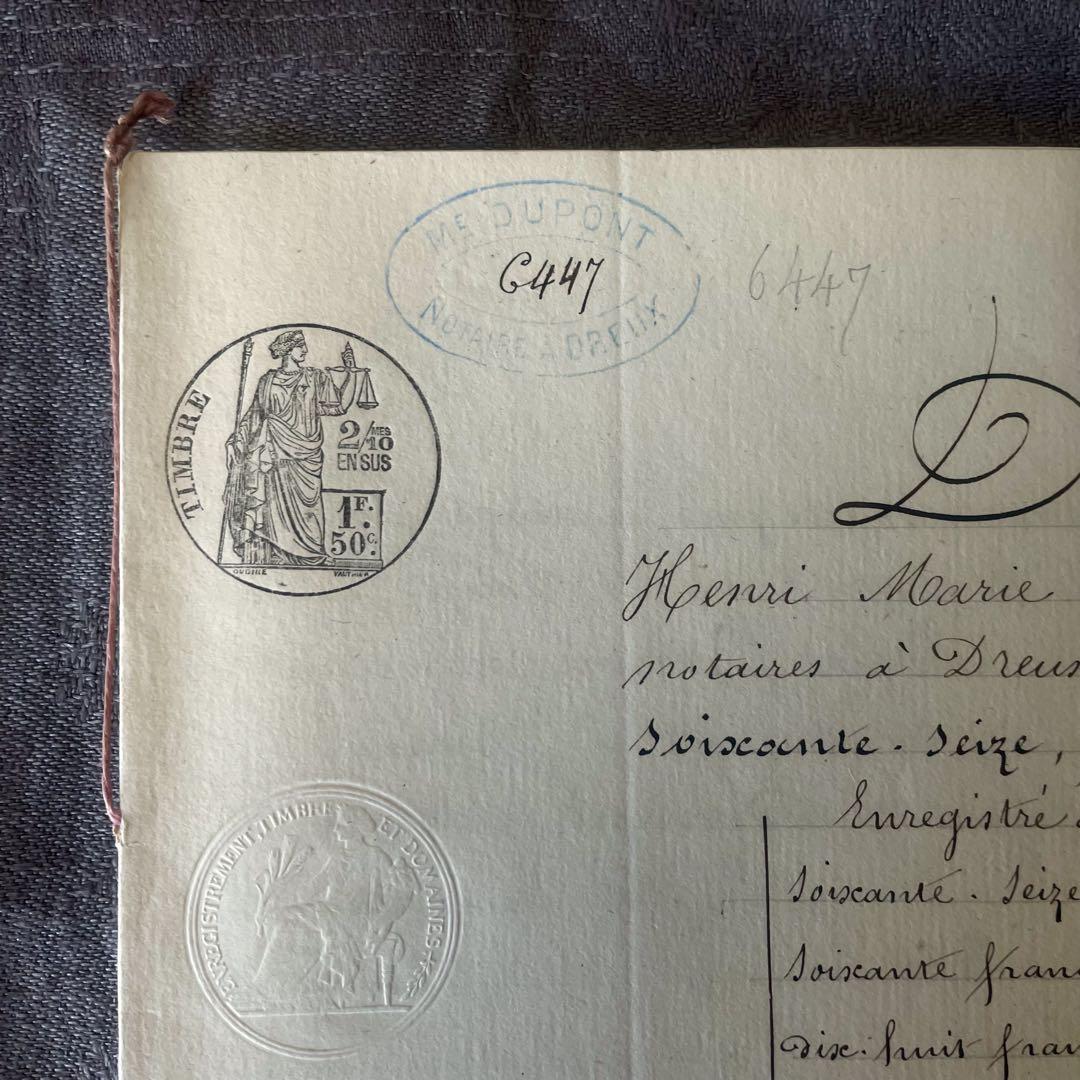 Mᴱ DUPONT
6447
NOTAIRE A DREUX
6447
TIMBRE
2/10 MES
EN SUS
1F.
50C.
OUDINÉ
D
Henri Marie
notaires à Dreux
Soixante-Seize,
Enregistré
ENREGISTREMENT, TIMBRE ET DOMAINES
Soixante-Seize
Soixante fran
Dix-huit fran